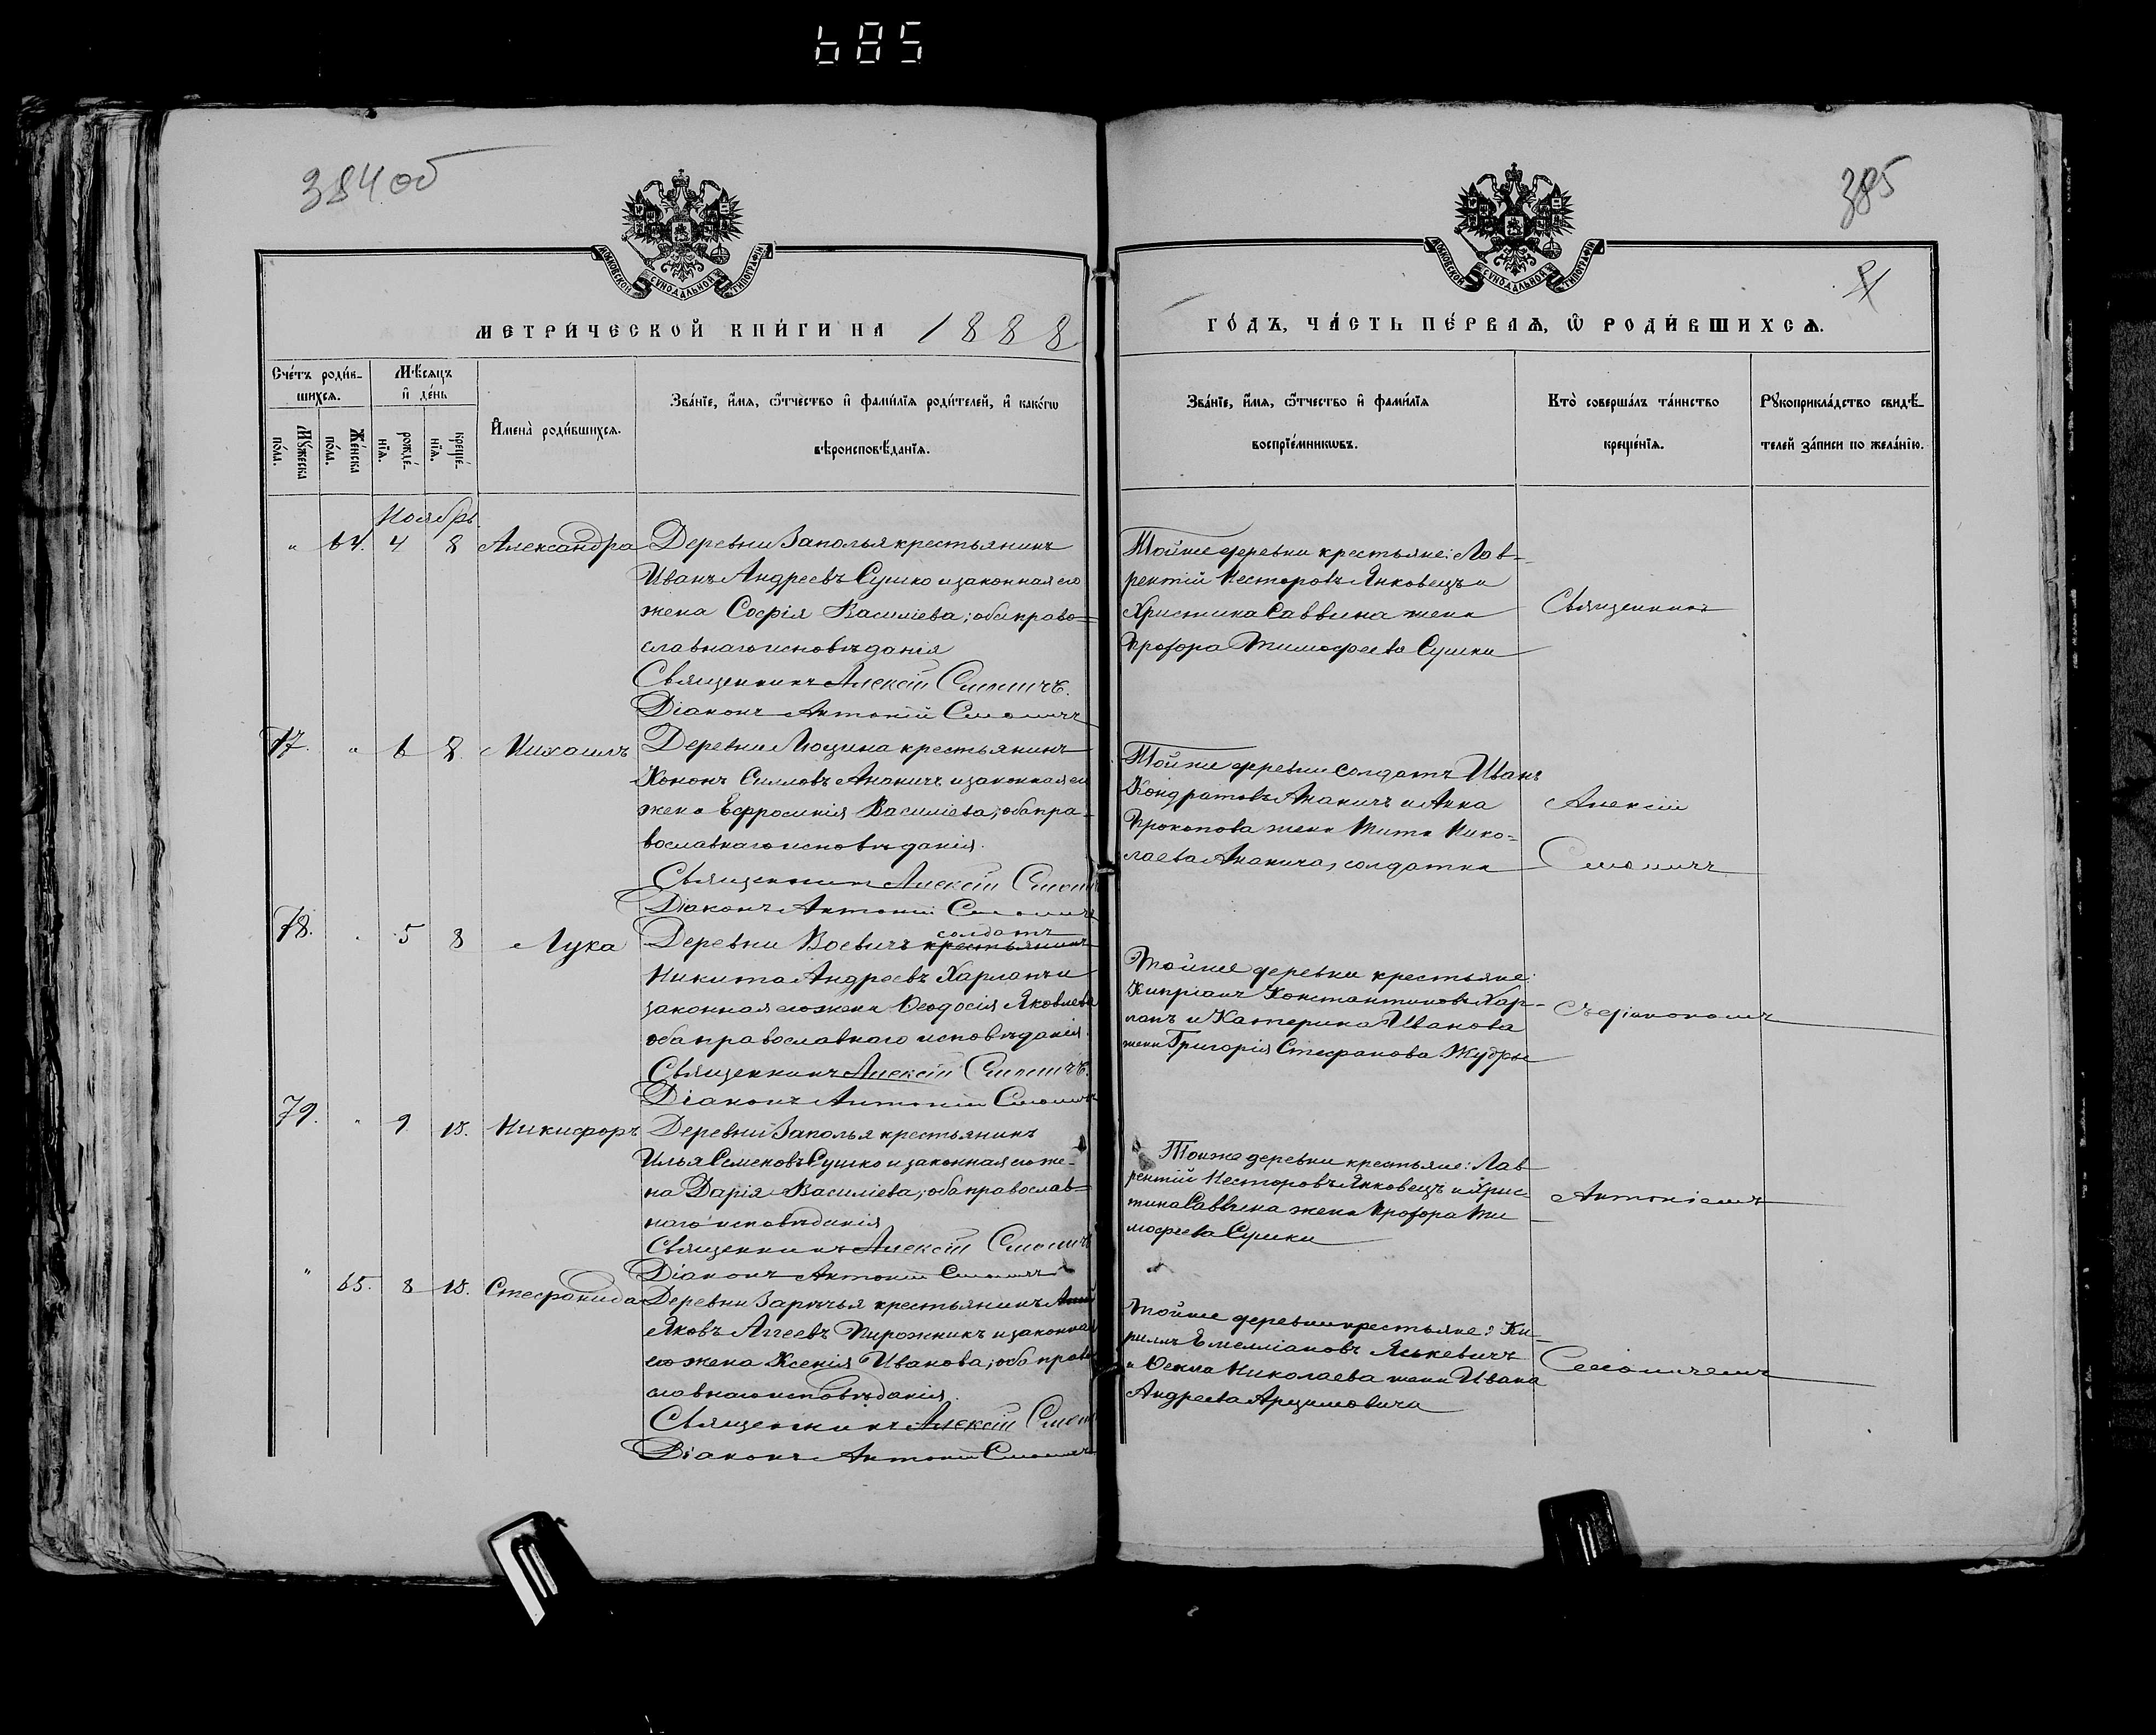 685
384 об
385
МОСКОВСКОЙ СѴНОДАЛЬНОЙ ТИПОГРАФІИ
МОСКОВСКОЙ СѴНОДАЛЬНОЙ ТИПОГРАФІИ
МЕТРИ́ЧЕСКОЙ КНИ́ГИ НА 1888
ГО́ДЪ, ЧА́СТЬ ПЕ́РВАѦ, Ѿ РОДИ́ВШИХСѦ.
Сче́тъ роди́в-
шихсѧ.
Мѣ́сяцъ
и҆ де́нь
Мꙋ́жеска
по́ла.
Же́нска
по́ла.
рожде́-
нїѧ.
креще́-
нїѧ.
И҆мена̀ роди́вшихсѧ.
Зва́нїе, и҆́мѧ, ѻ҆́тчество и҆ фами́лїѧ роди́телей, и҆ како́гѡ
вѣроисповѣ́данїѧ.
Зва́нїе, и҆́мѧ, ѻ҆́тчество и҆ фами́лїѧ
воспрїе́мникѡвъ.
Кто̀ соверша́лъ та́инство
креще́нїѧ.
Рꙋкоприкла́дство свидѣ́-
телей за́писи по жела́нїю.
Ноябрь
" 64. 4 8 Александра
Деревни Заполья крестьянинъ
Иванъ Андреевъ Сушко и законная его
жена Софія Василіева; оба право=
славнаго исповѣданія
Священникъ Алексій Смоличъ.
Діаконъ Антоній Смоличъ
Тойже деревни крестьяне: Лав-
рентій Несторовъ Янковецъ и
Христина Саввина жена
Прохора Тимофеева Сушки
Священникъ
77. " 6 8. Михаилъ
Деревни Люцина крестьянинъ
Кононъ Силовъ Ананичъ и законная его
жена Ефросинія Василіева; оба пра-
вославнаго исповѣданія.
Священникъ Алексій Смоличъ
Діаконъ Антоній Смоличъ
Той же деревни солдатъ Иванъ
Кондратовъ Ананичъ и Анна
Прокопова жена Тита Нико-
лаева Ананича, солдатка
Алексій
Смоличъ
78. . 5 8 Лука
солдатъ
Деревни Воевичъ крестьянинъ
Никита Андреевъ Харланъ и
законная его жена Ѳеодосія Яковлева
оба православнаго исповѣданія
Священникъ Алексій Смоличъ.
Діаконъ Антоній Смоличъ
Тойже деревни крестьяне:
Кипріанъ Константиновъ Хар-
ланъ и Катерина Иванова
жена Григорія Стефанова
съ діакономъ
79. . 9 13. Никифоръ
Деревни Заполья крестьянинъ
Илья Семеновъ Сушко и законная его же-
на Дарія Василіева; оба православ-
наго исповѣданія
Священникъ Алексій Смоличъ
Діаконъ Антоній Смоличъ
Тойже деревни крестьяне: Лав
рентій Несторовъ Янковецъ и Хрис-
тина Саввина жена Прохора Ти
мофеева Сушки
Антоніемъ
" 65. 8 13. Стефанида
Деревни Зарѣчья крестьянинъ
Яковъ Аггеевъ Пирожникъ и законная
его жена Ксенія Иванова; оба право
славнаго исповѣданія.
Священникъ Алексій Смоличъ
Діаконъ Антоній Смоличъ
Тойже деревни крестьяне: Ки-
риллъ Емеліановъ Яськевичъ
и Ѳекла Николаева жена Ивана
Андреева Арцимовича
Смоличемъ